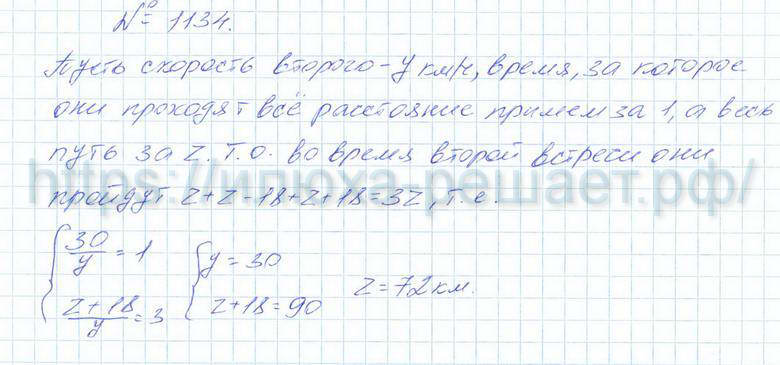 № 1134.
Пусть скорость второго – y км/ч, время, за которое
они проходят всё расстояние примем за 1, а весь
путь за z. Т.о. во время второй встречи они
https://илюха-решает.рф/
пройдут z + z - 18 + z + 18 = 3z, т.е.
{ 30/y = 1 { y = 30
z = 72 км.
{ (z + 18)/y = 3 { z + 18 = 90